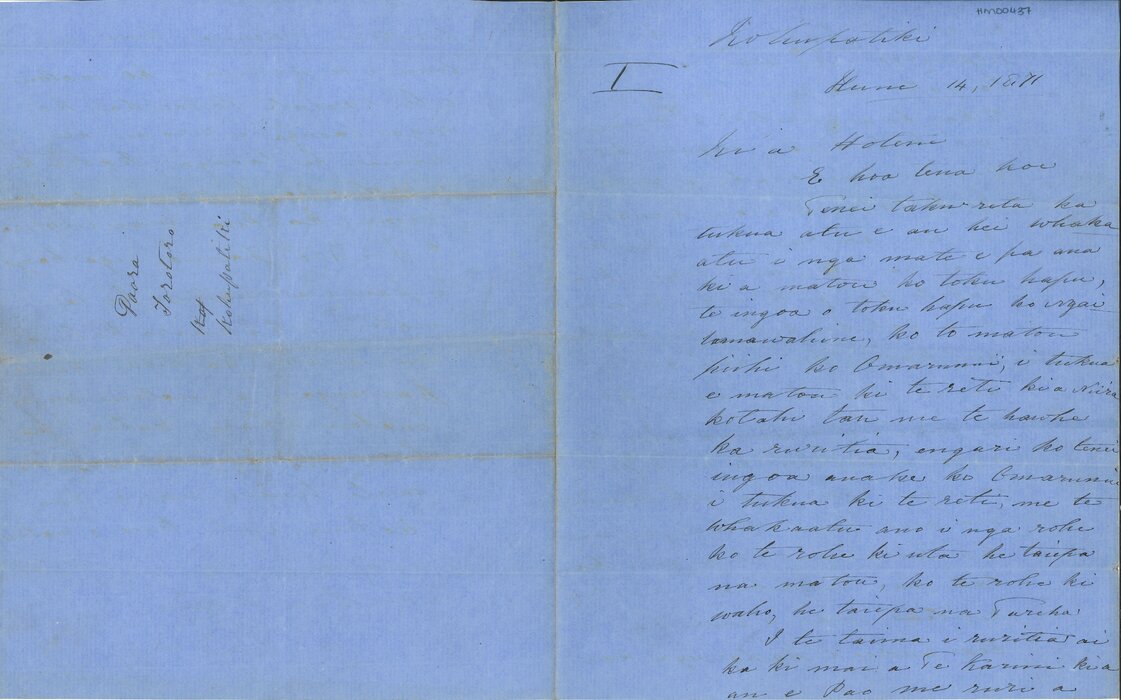 Poora
Torotoro
Kohupatiki
HM00437
Kohupatiki
I
Hune 14, 1871
Ki a Hoteni
E hoa tena koe
Tenei taku reta ka
tukua atu e au hei whaka
atu i nga mate e pa ana
ki a matou ko toku hapu,
te ingoa o toku hapu ko Ngai
tamawahine, ko to matou
pihi ko Omarunui, i tukua
e matou ki te reti kia
kotahi tau me te hawhe
ka ruritia, engari ko tenei
ingoa anake ko Omarunui
i tukua ki te reti, me te
whakaatu ano i nga rohe
ko te rohe ki uta he taiepa
na matou, ko te rohe ki
waho, he taiepa na Tareha
I te taima i ruritia ai
ka ki mai a Te Karini kia
au e Pao me ruri a